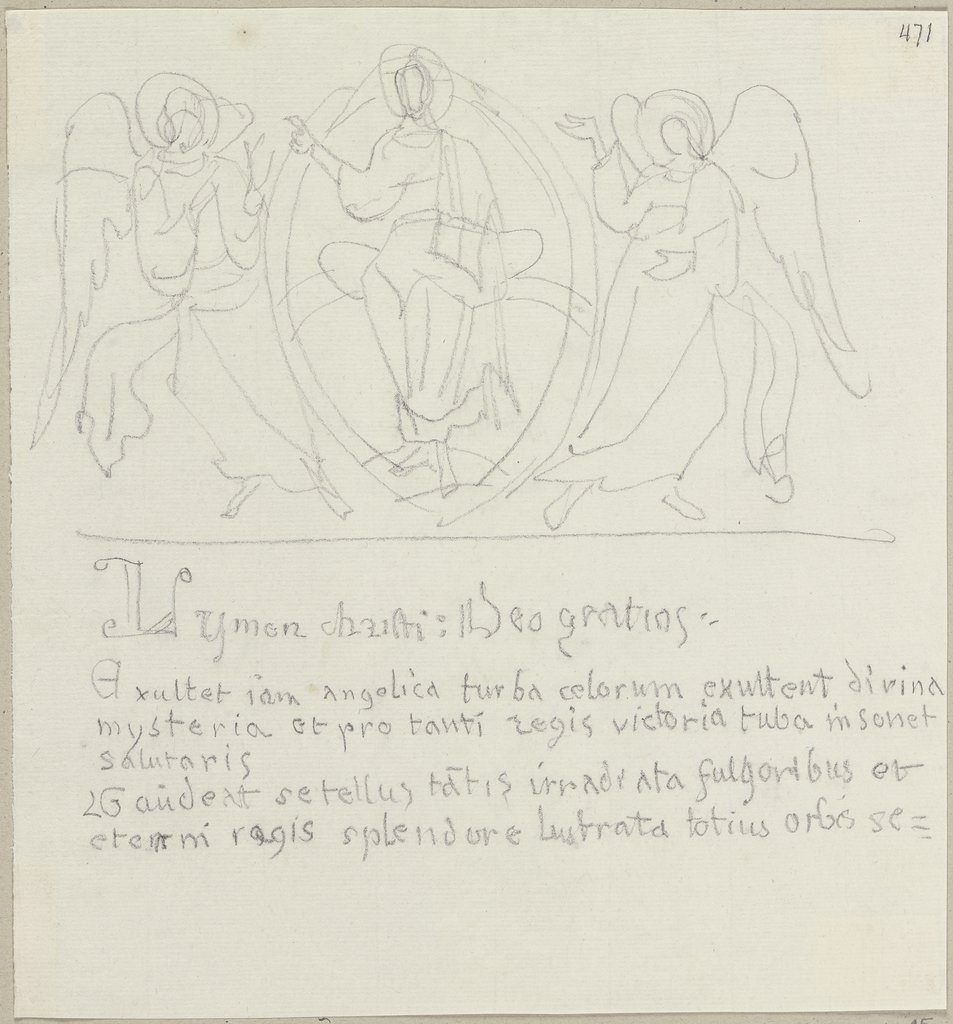 471
Lymen christi: Deo gratias ~
Exultet iam angelica turba celorum exultent divina
mysteria et pro tanti regis victoria tuba insonet
salutaris
Gaudeat se tellus tātis irradiata fulgoribus et
eterni regis splendore lustrata totius orbis se=